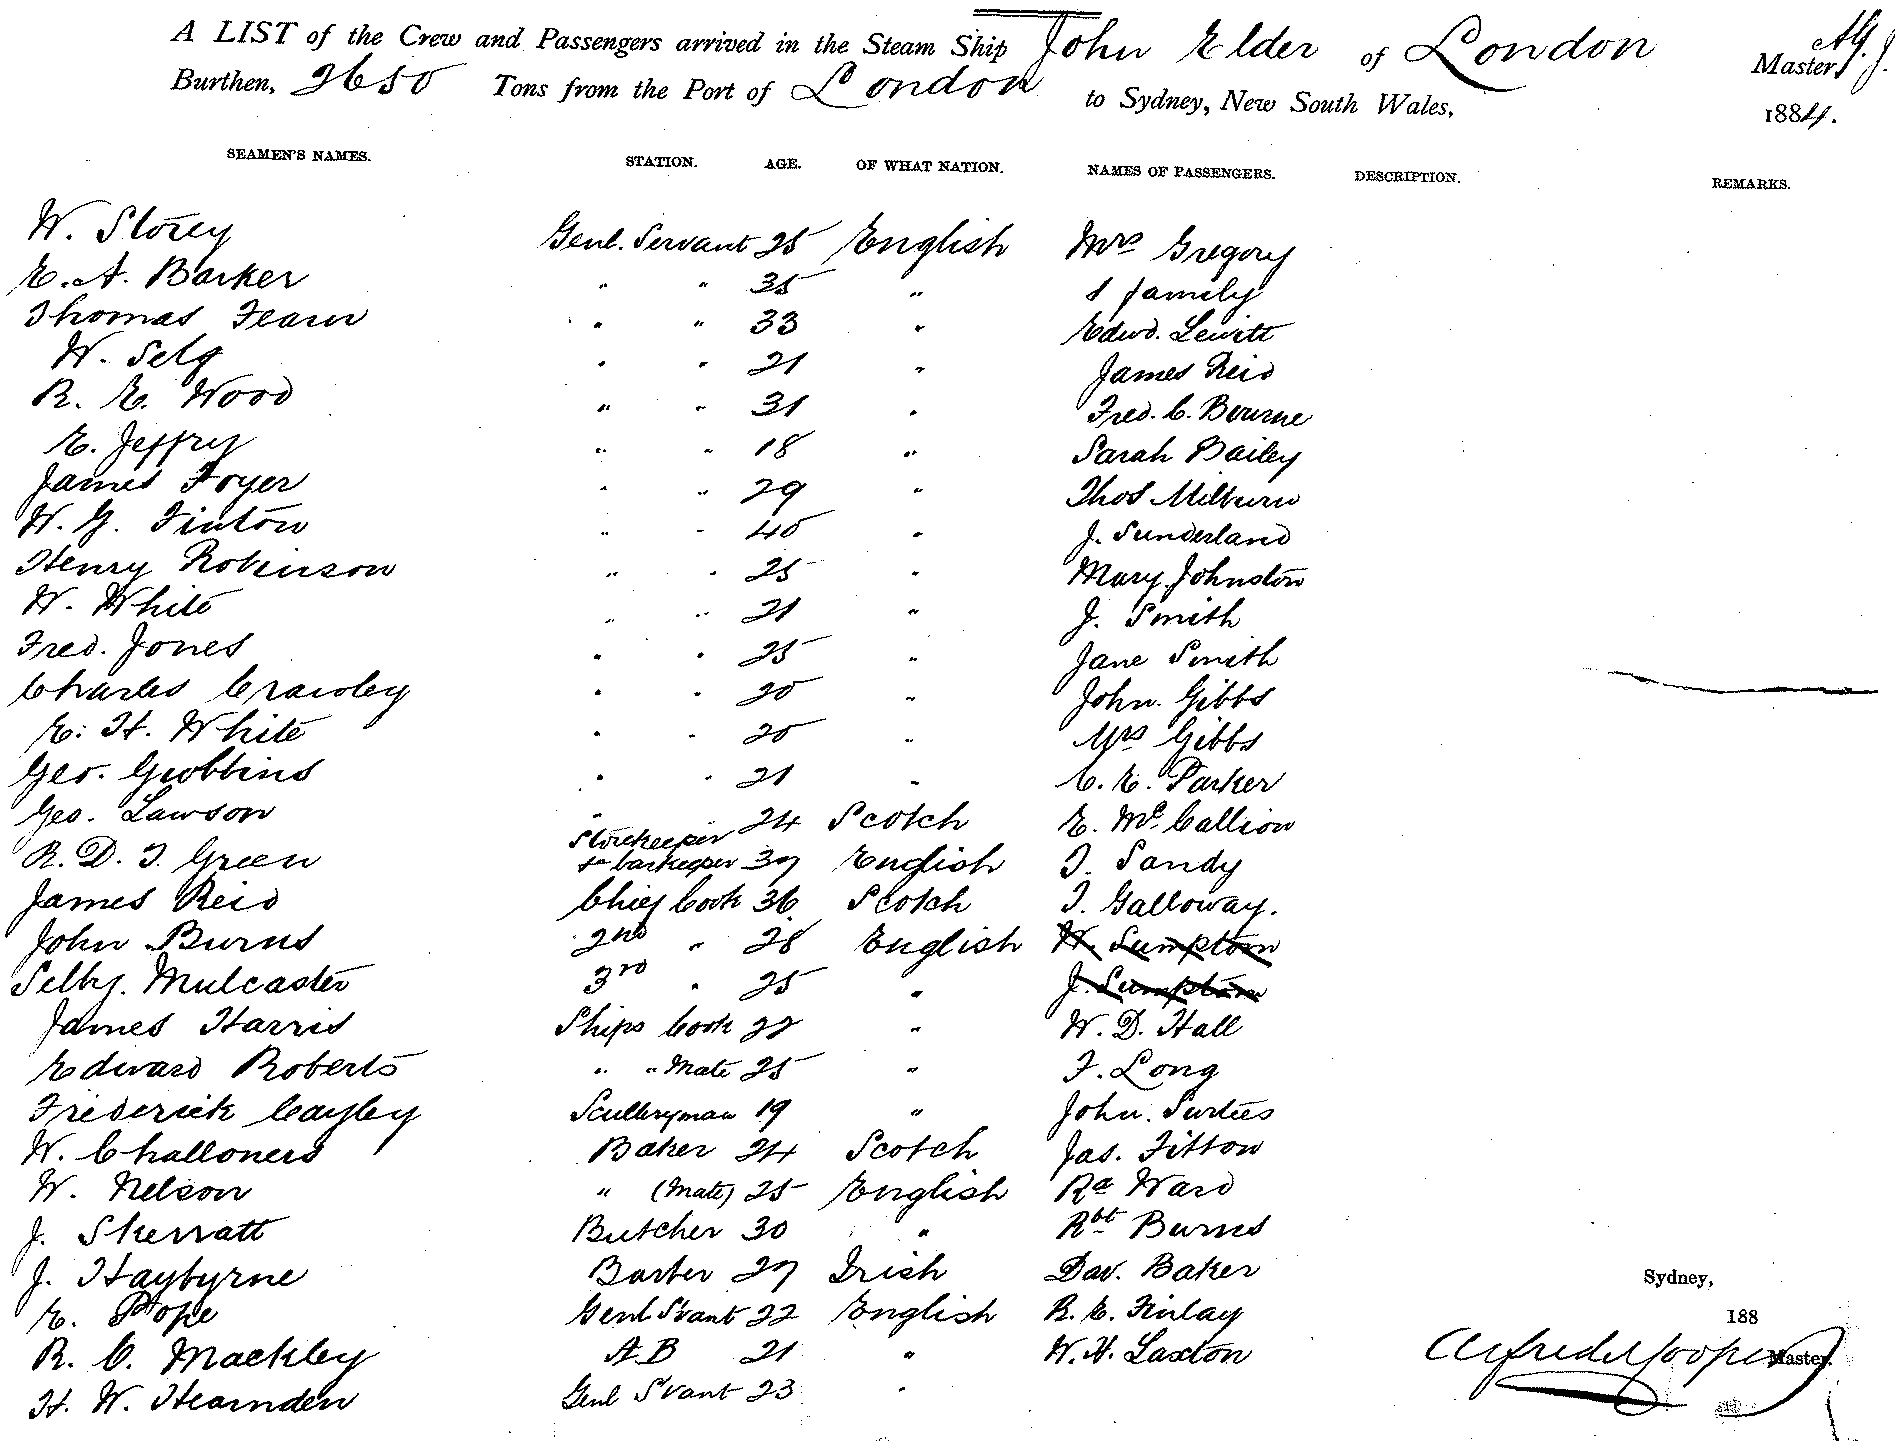 A LIST of the Crew and Passengers arrived in the Steam Ship John Elder of London
Master
Burthen, 2650 Tons from the Port of London to Sydney, New South Wales,
1884.
SEAMEN'S NAMES. STATION. AGE. OF WHAT NATION. NAMES OF PASSENGERS. DESCRIPTION. REMARKS.
W. Storey Genl. Servant 25 English Mrs Gregory
E. A. Barker " " 35 " & family
Thomas Fearn " " 33 " Edwd. Lewitt
W. Self " " 21 " James Reid
R. E. Wood " " 31 " Fred. C. Bourne
E. Jeffry " " 18 " Sarah Bailey
James Foyer " " 29 " Thos Milburn
W. G. Finton " " 40 " J. Sunderland
Henry Robinson " " 25 " Mary Johnston
W. White " " 21 " J. Smith
Fred. Jones " " 25 " Jane Smith
Charles Crawley " " 20 " John Gibbs
E. H. White " " 20 " Mrs Gibbs
Geo. Gubbins " " 21 " C. E. Parker
Geo. Lawson " 24 Scotch E. Mc.Callion
R. D. T. Green Storekeeper & barkeeper 37 English T. Sandy
James Reid Chief Cook 36 Scotch T. Galloway.
John Burns 2nd " 28 English W. Sumpton
Selby Mulcaster 3rd " 25 " J. Sumpton
James Harris Ships Cook 22 " W. D. Hall
Edward Roberts " " Mate 25 " F. Long
Frederick Cayley Sculleryman 19 " John Surtees
W. Challoners Baker 24 Scotch Jas. Fitton
W. Nelson " (Mate) 25 English Rd Ward
J. Skerratt Butcher 30 " Rbt Burns
J. Haybyrne Barber 27 Irish Dav. Baker
Sydney,
E. Pope Genl S'vant 22 English R. E. Finlay
188
R. C. Mackley A.B 21 " W. H. Laxton
Alfred Cooper Master.
H. W. Hearnden Genl S'vant 23 "